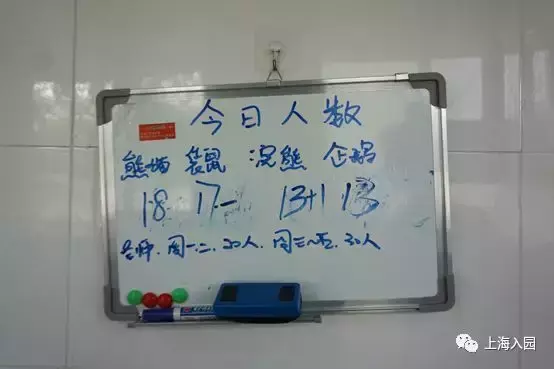 今日人数
熊猫 袋鼠 浣熊 企鹅
18 17- 13+1 13
老师. 周一.二. 20人. 周三~五. 30人
上海入园